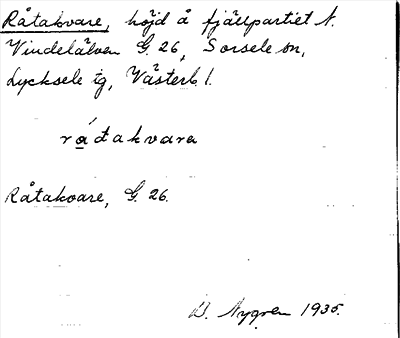 Råtakvare, höjd å fjällpartiet N.
Vindelälven G. 26, Sorsele sn,
Lycksele tg, Västerb l.
rátakvara
Råtakvare, G. 26.
B. Nygren 1935.